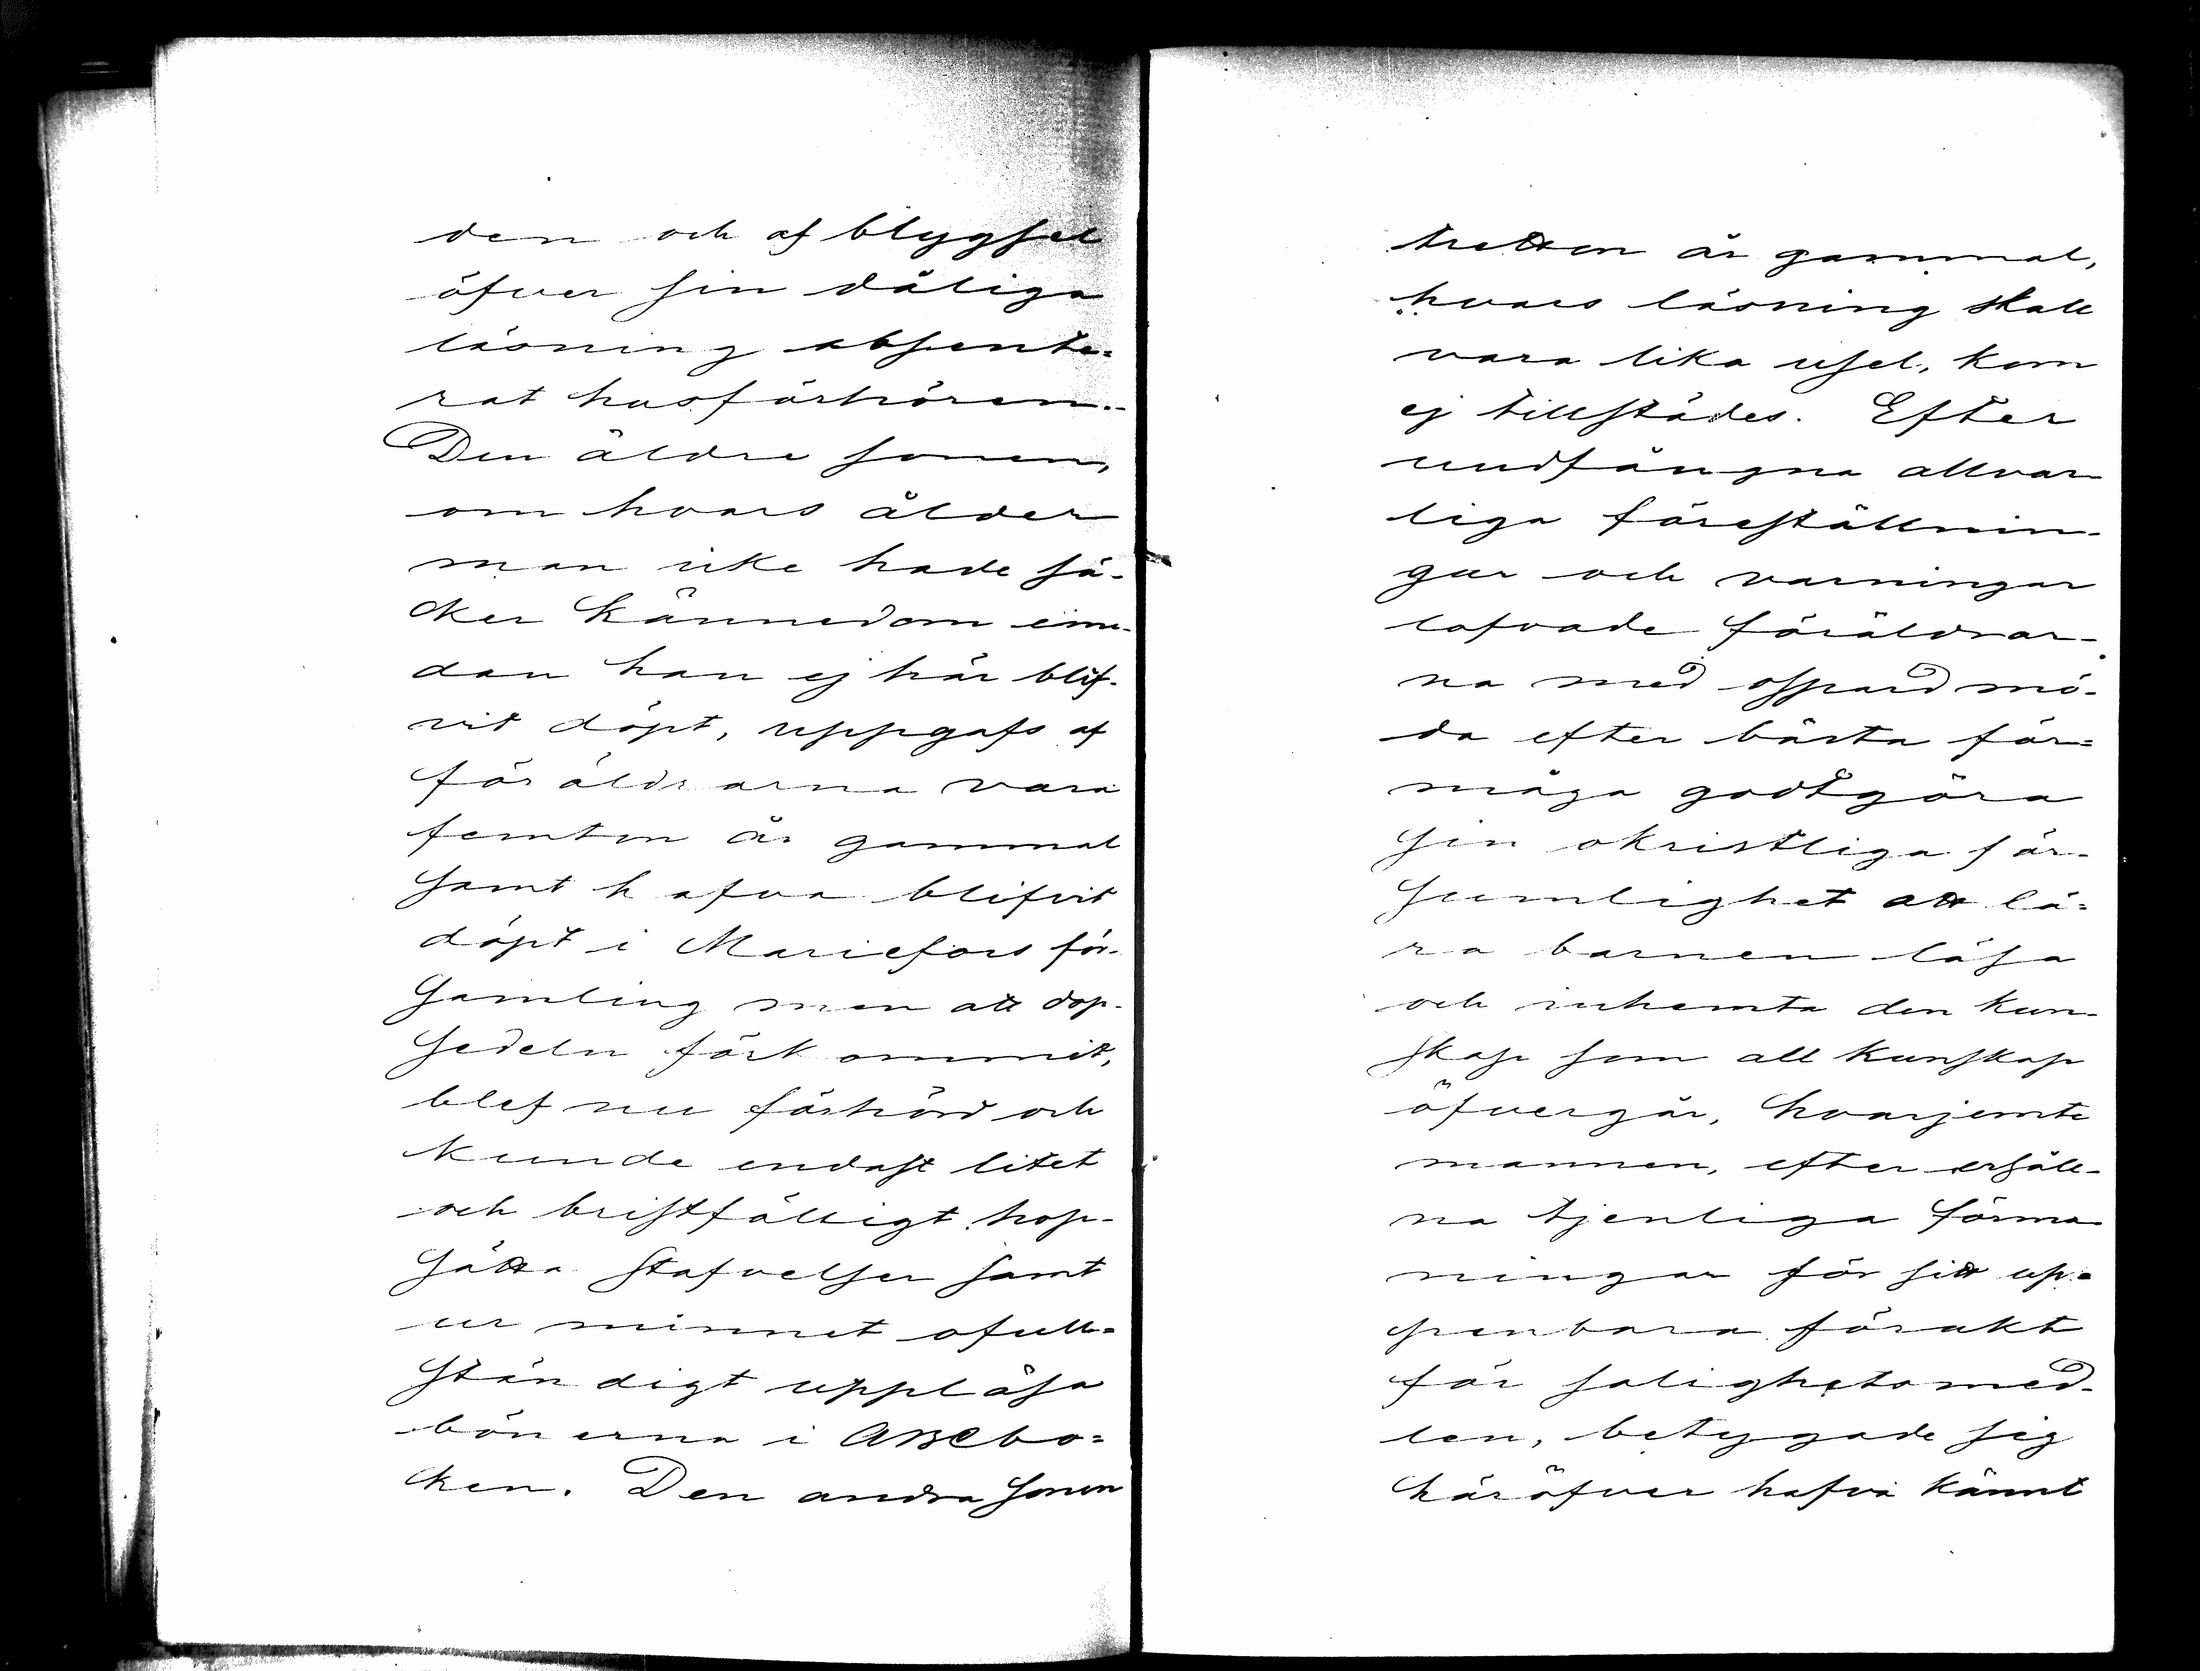 den och af blygsel
öfver sin dåliga
läsning absente=
rat husförhören.
Den äldre sonen,
om hvars ålder
man icke hade sä-
ker kännedom eme-
dan han ej här blif-
vit döpt, uppgafs af
föräldrarna vara
femton år gammal
samt hafva blifvit
döpt i Mariefors för-
samling men att dop-
sedeln förkommit,
blef nu förhörd och
kunde endast litet
och bristfälligt hop-
sätta stafvelser samt
ur minnet ofull=
ständigt uppläsa
bönerna i ABCbo=
ken. Den andra sonen
tretton år gammal,
hvars läsning skall
vara lika usel, kom
ej tillstädes. Efter
undfångna allvar-
liga föreställnin-
gar och varningar
lofvade föräldrar-
na med ospard mö-
da efter bästa för=
måga godtgöra
sin okristliga för-
sumlighet att lä=
ra barnen läsa
och inhemta den kun-
skap som all kunskap
öfvergår, hvarjemte
mannen, efter erhåll-
na tjenliga förma-
ningar för sitt up=
penbara förakt
för salighetsmed-
len, betygade sig
häröfver hafva kännt